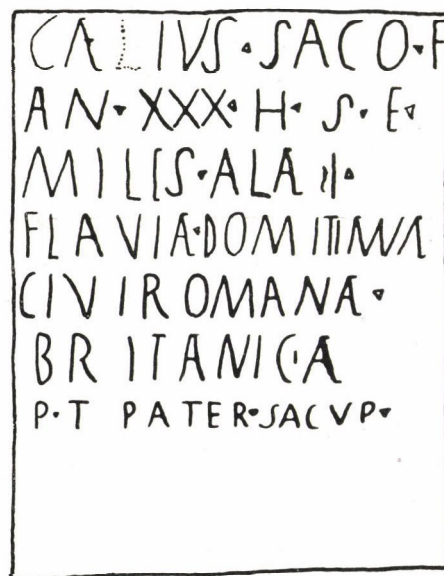 CALIVS · SACO · F
AN · XXX · H · S · E ·
MILES · ALA II ·
FLAVIA · DOMITIANA
CIVI ROMANA ·
BRITANICA
P · T PATER · SACVP ·